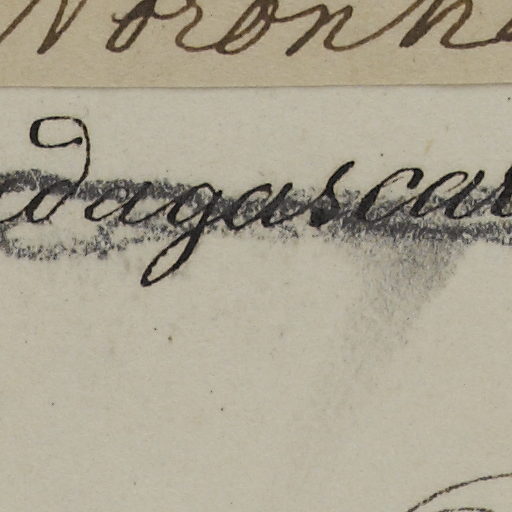 Noronh
adagascar